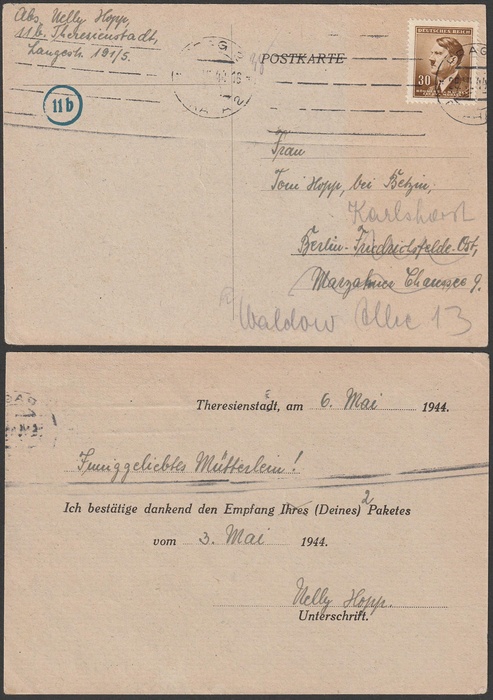 Abs. Nelly Hopp,
11b. Theresienstadt,
Langestr. 191/5.
11b
POSTKARTE
DEUTSCHES REICH
30
Frau
Toni Hopp, bei Betzin,
Karlshorst
Berlin-Friedrichsfelde-Ost,
Marzahner Chaussee 9.
Waldow Allee 13
Theresienstadt, am 6. Mai 1944.
Inniggeliebtes Mütterlein!
Ich bestätige dankend den Empfang Ihres (Deines) 2 Paketes
vom 3. Mai 1944.
Nelly Hopp.
Unterschrift.